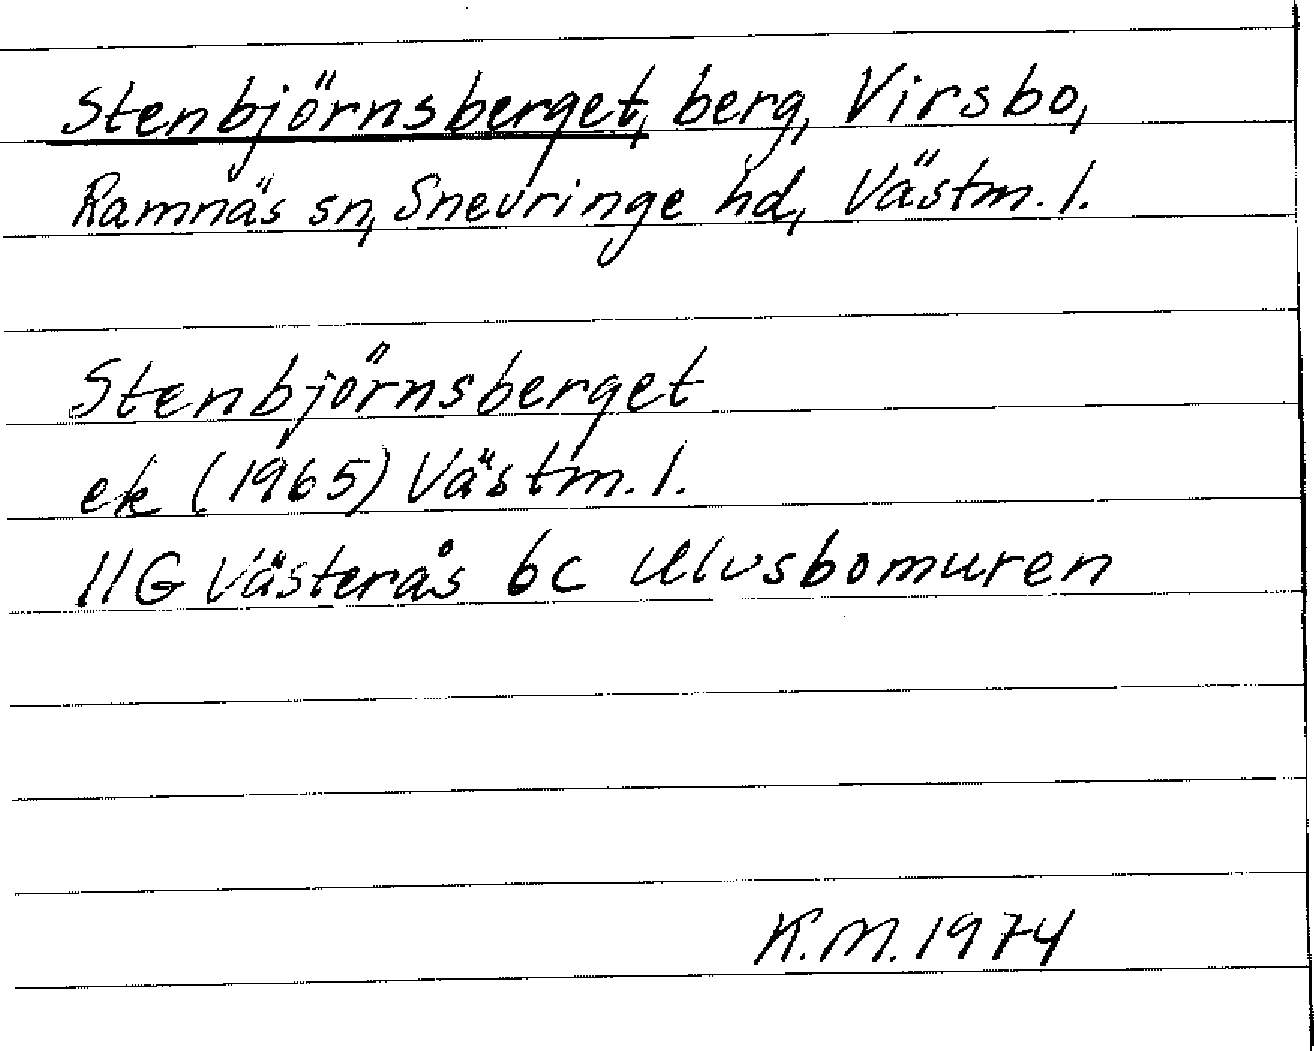 Stenbjörnsberget, berg, Virsbo,
Ramnäs sn, Snevringe hd, Västm. l.
Stenbjörnsberget
ek (1965) Västm. l.
11G Västerås 6c Ulvsbomuren
K.M. 1974